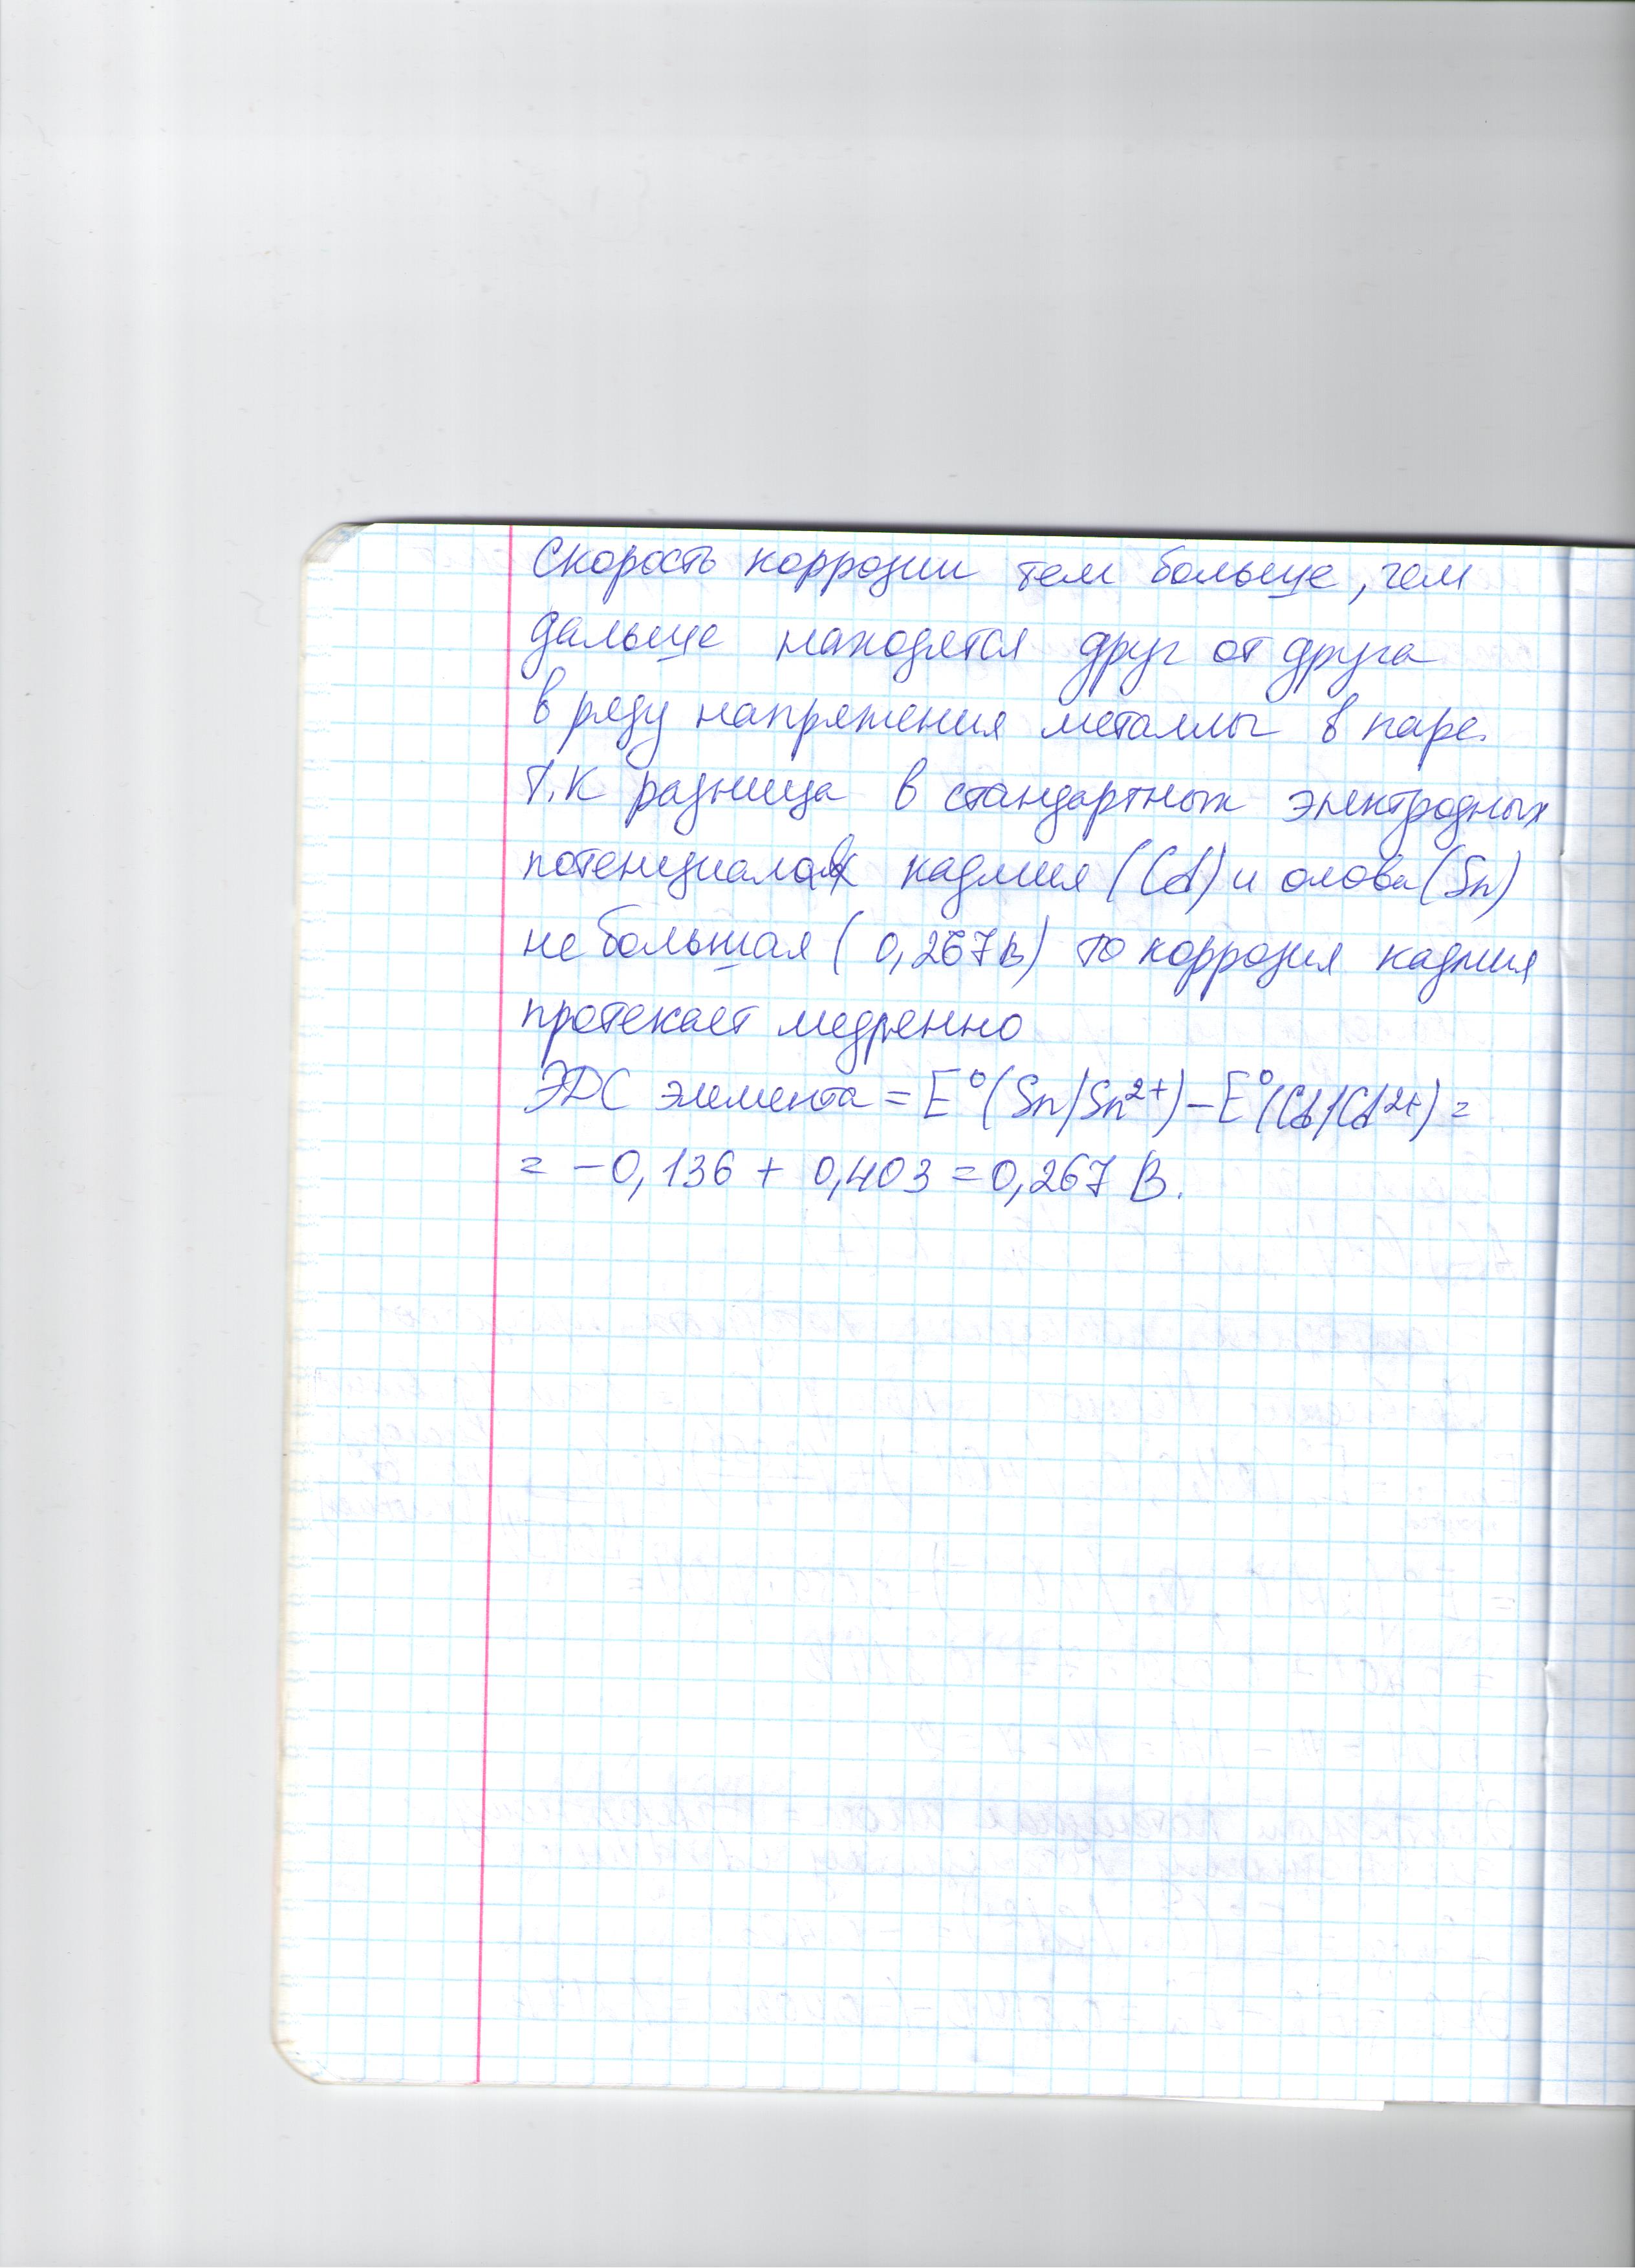 Скорость коррозии тем больше, чем
дальше находятся друг от друга
в ряду напряжения металлы в паре.
Т.к разница в стандартных электродных
потенциалах кадмия (Cd) и олова (Sn)
не большая (0,267в) то коррозия кадмия
протекает медленно
ЭДС элемента = E⁰(Sn/Sn²⁺) – E⁰(Cd/Cd²⁺) =
= –0,136 + 0,403 = 0,267 В.